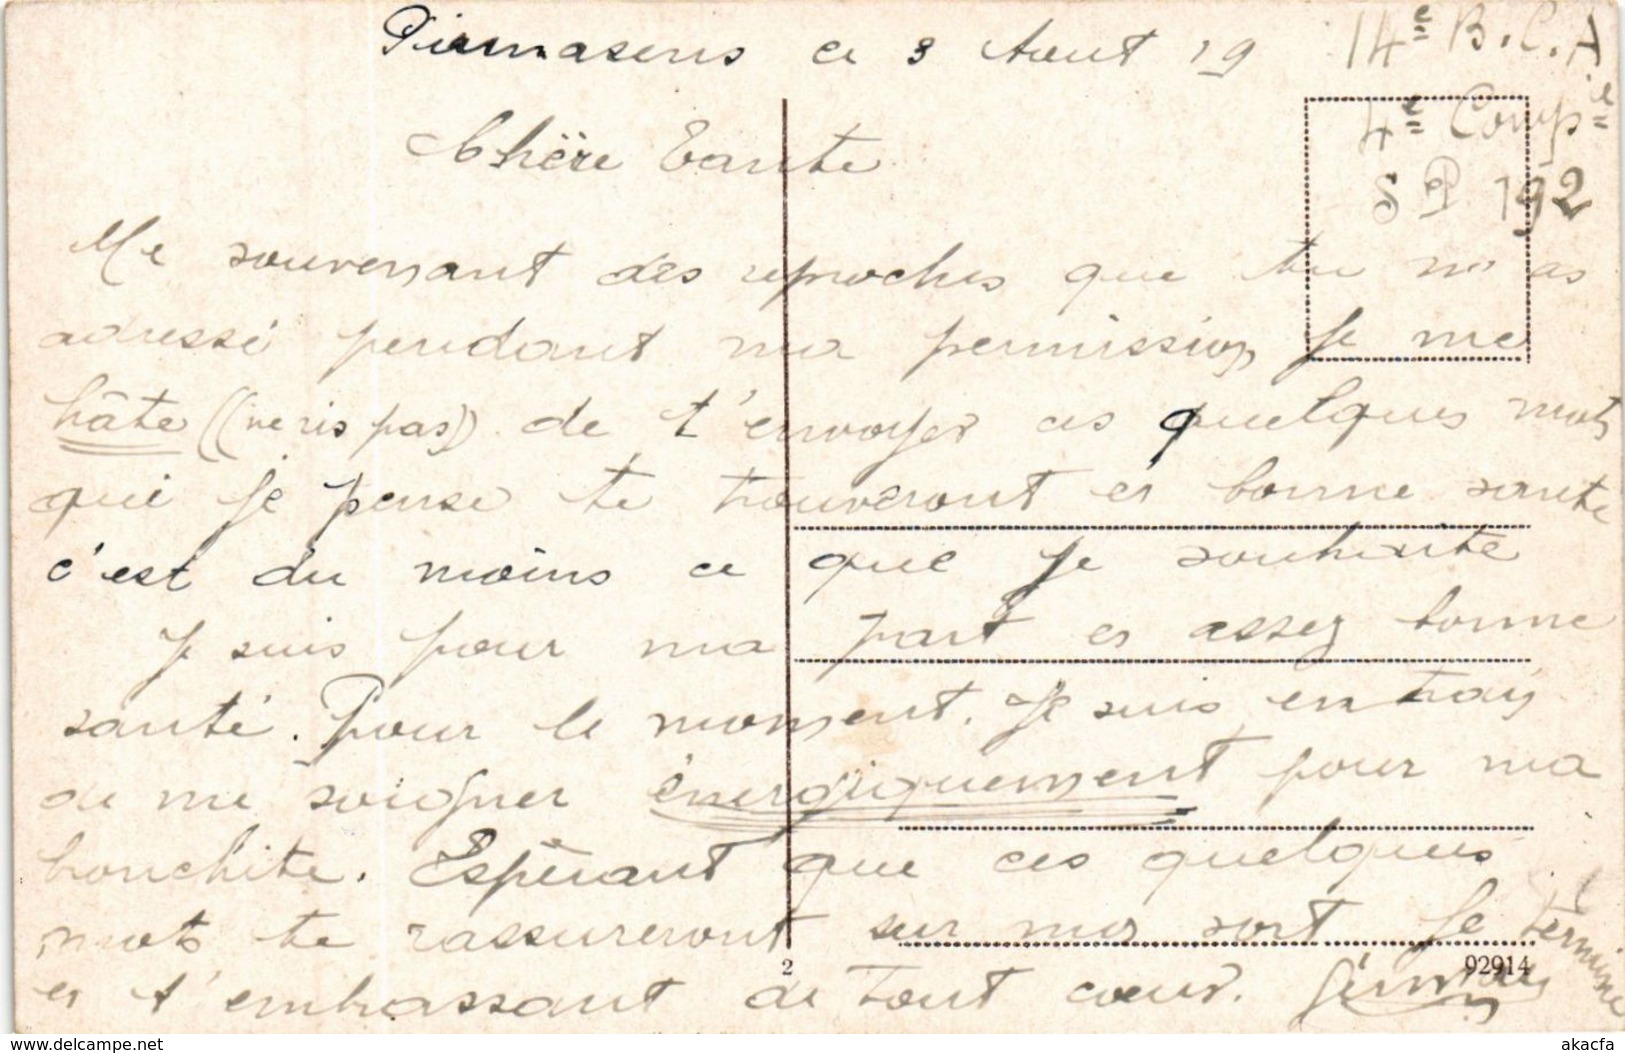 Pirmasens ce 3 Aout 19
14e B.C.A
4e Compie
SP 192
Chère Tante
Me souvenant des reproches que tu m'as
adressé pendant ma permission je me
hâte ((ne ris pas)) de t'envoyer ces quelques mots
qui je pense te trouveront en bonne santé
c'est du moins ce que je souhaite
Je suis pour ma part en assez bonne
santé. Pour le moment. Je suis en train
de me soigner énergiquement pour ma
bronchite. Espérant que ces quelques
mots te rassureront sur mon sort Je termine
en t'embrassant de tout coeur.
2
92914
akacfa
www.delcampe.net